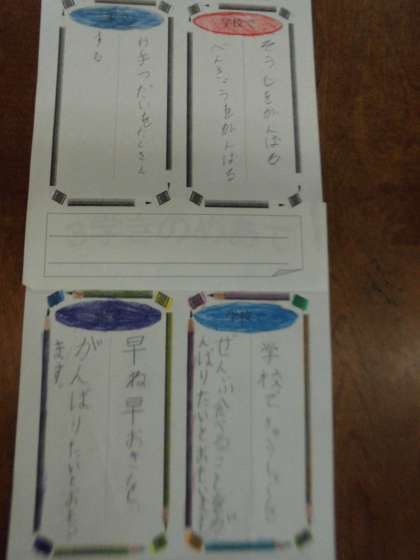 学校で
そうじをがんばる
べんきょうをがんばる
お手つだいをたくさん
する
学校で
学校できゅうしょくを
ぜんぶ食べることをが
んばりたいとおもいます
早ね早おきなど、
がんばりたいとおもい
ます。